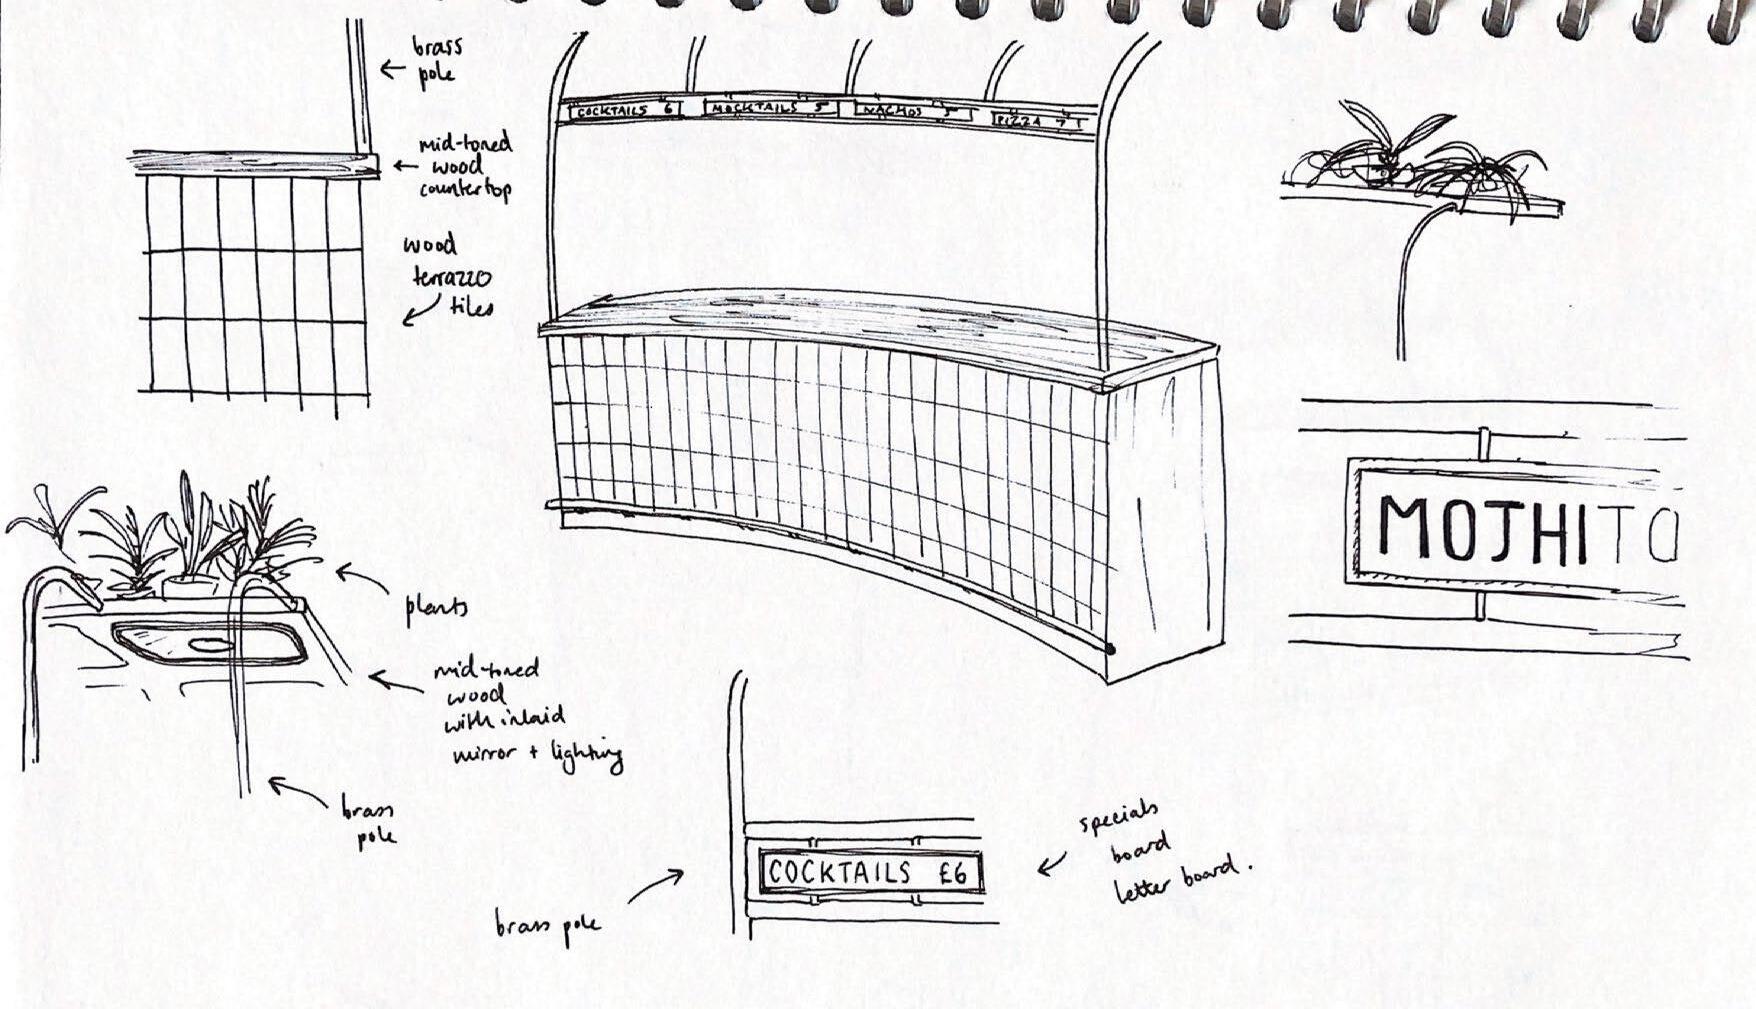 brass
pole
mid-toned
wood
countertop
wood
terrazzo
tiles
COCKTAILS 6
MOCKTAILS 5
NACHOS 5
PIZZA 7
MOJHITO
plants
mid-toned
wood
with inlaid
mirror + lighting
brass
pole
COCKTAILS £6
brass pole
specials
board
letter board.